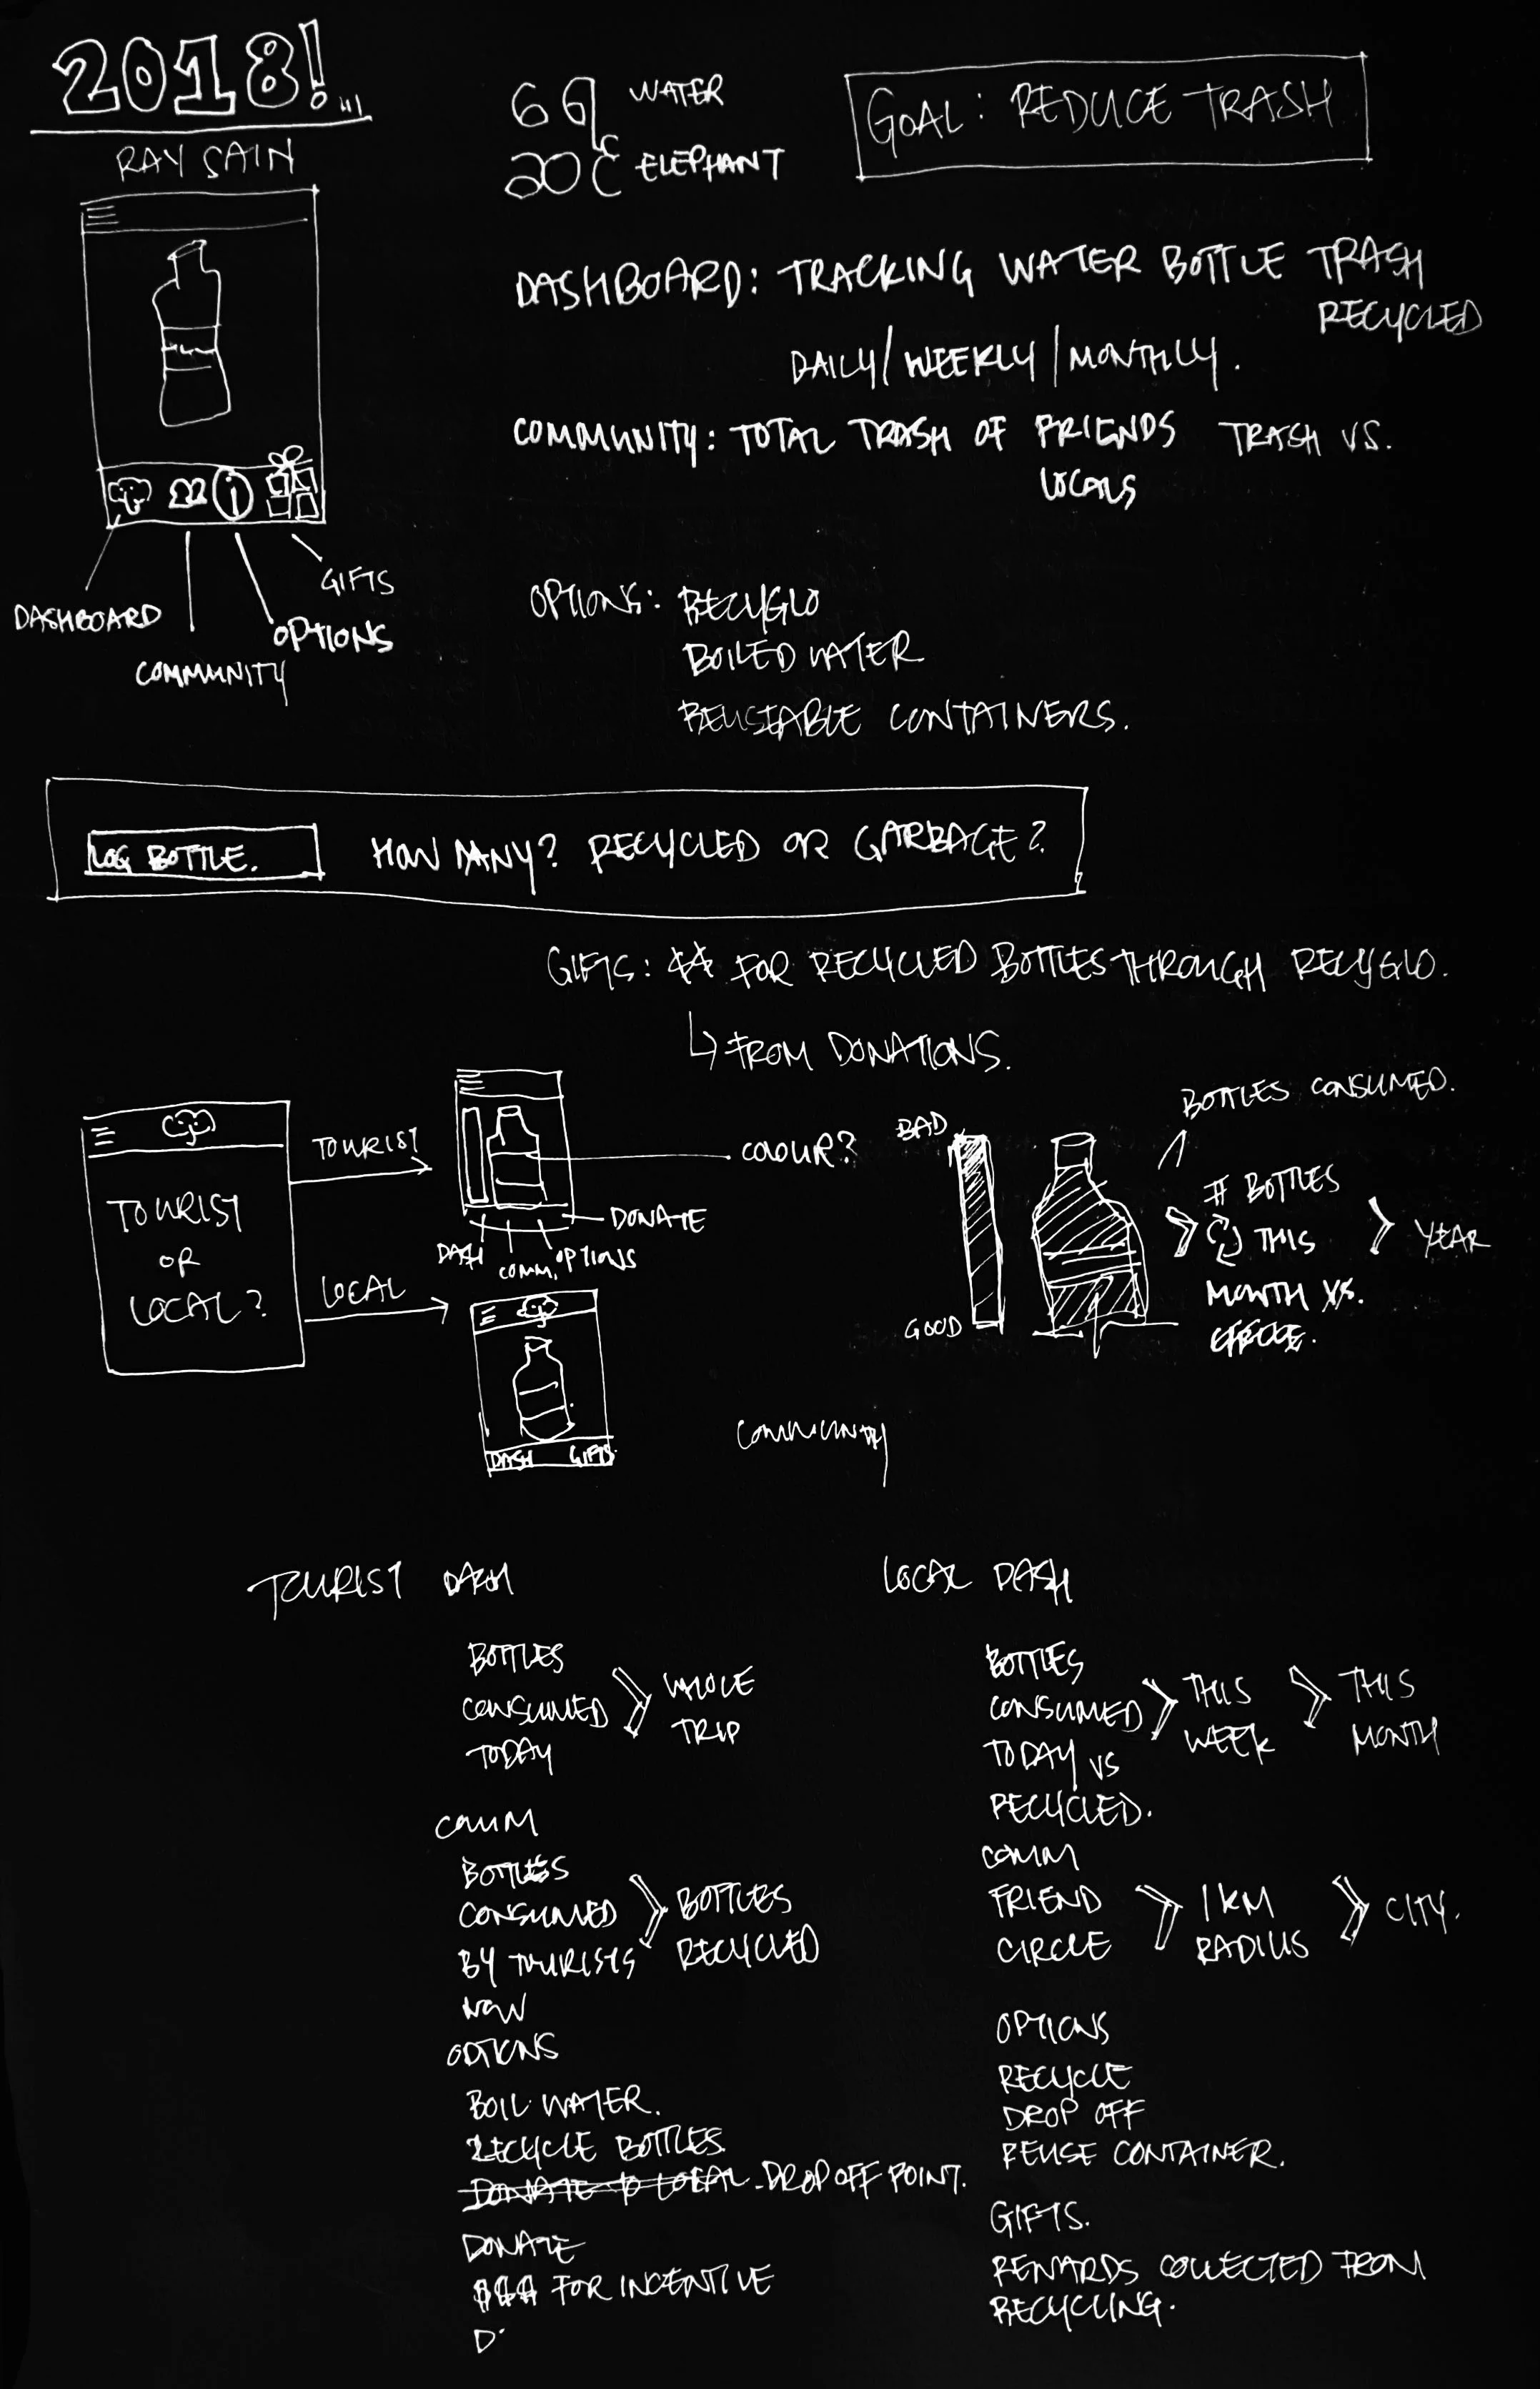 2018!...
RAY SAIN
WATER
ELEPHANT
GOAL: REDUCE TRASH
DASHBOARD: TRACKING WATER BOTTLE TRASH
RECYCLED
DAILY/WEEKLY/MONTHLY.
COMMUNITY: TOTAL TRASH OF FRIENDS TRASH VS.
LOCALS
GIFTS
DASHBOARD
OPTIONS
COMMUNITY
OPTIONS: RECYGLO
BOILED WATER
REUSEABLE CONTAINERS.
LOG BOTTLE. HOW MANY? RECYCLED OR GARBAGE?
GIFTS: $$ FOR RECYCLED BOTTLES THROUGH RECYGLO.
↳ FROM DONATIONS.
TOURIST
OR
LOCAL?
TOURIST
LOCAL
COLOUR?
DONATE
DASH
COMM.
OPTIONS
DASH GIFTS
BAD
GOOD
BOTTLES CONSUMED.
# BOTTLES
THIS > YEAR
MONTH VS.
COMMUNITY
TOURIST DASH
BOTTLES
CONSUMED > WHOLE
TODAY TRIP
COMM
BOTTLES
CONSUMED > BOTTLES
BY TOURISTS RECYCLED
NOW
OPTIONS
BOIL WATER.
RECYCLE BOTTLES
DONATE TO LOCAL - DROP OFF POINT.
DONATE
$$$ FOR INCENTIVE
D.
LOCAL DASH
BOTTLES
CONSUMED > THIS > THIS
TODAY VS WEEK MONTH
RECYCLED.
COMM
FRIEND > 1 KM > CITY.
CIRCLE RADIUS
OPTIONS
RECYCLE
DROP OFF
REUSE CONTAINER.
GIFTS.
REWARDS COLLECTED FROM
RECYCLING.